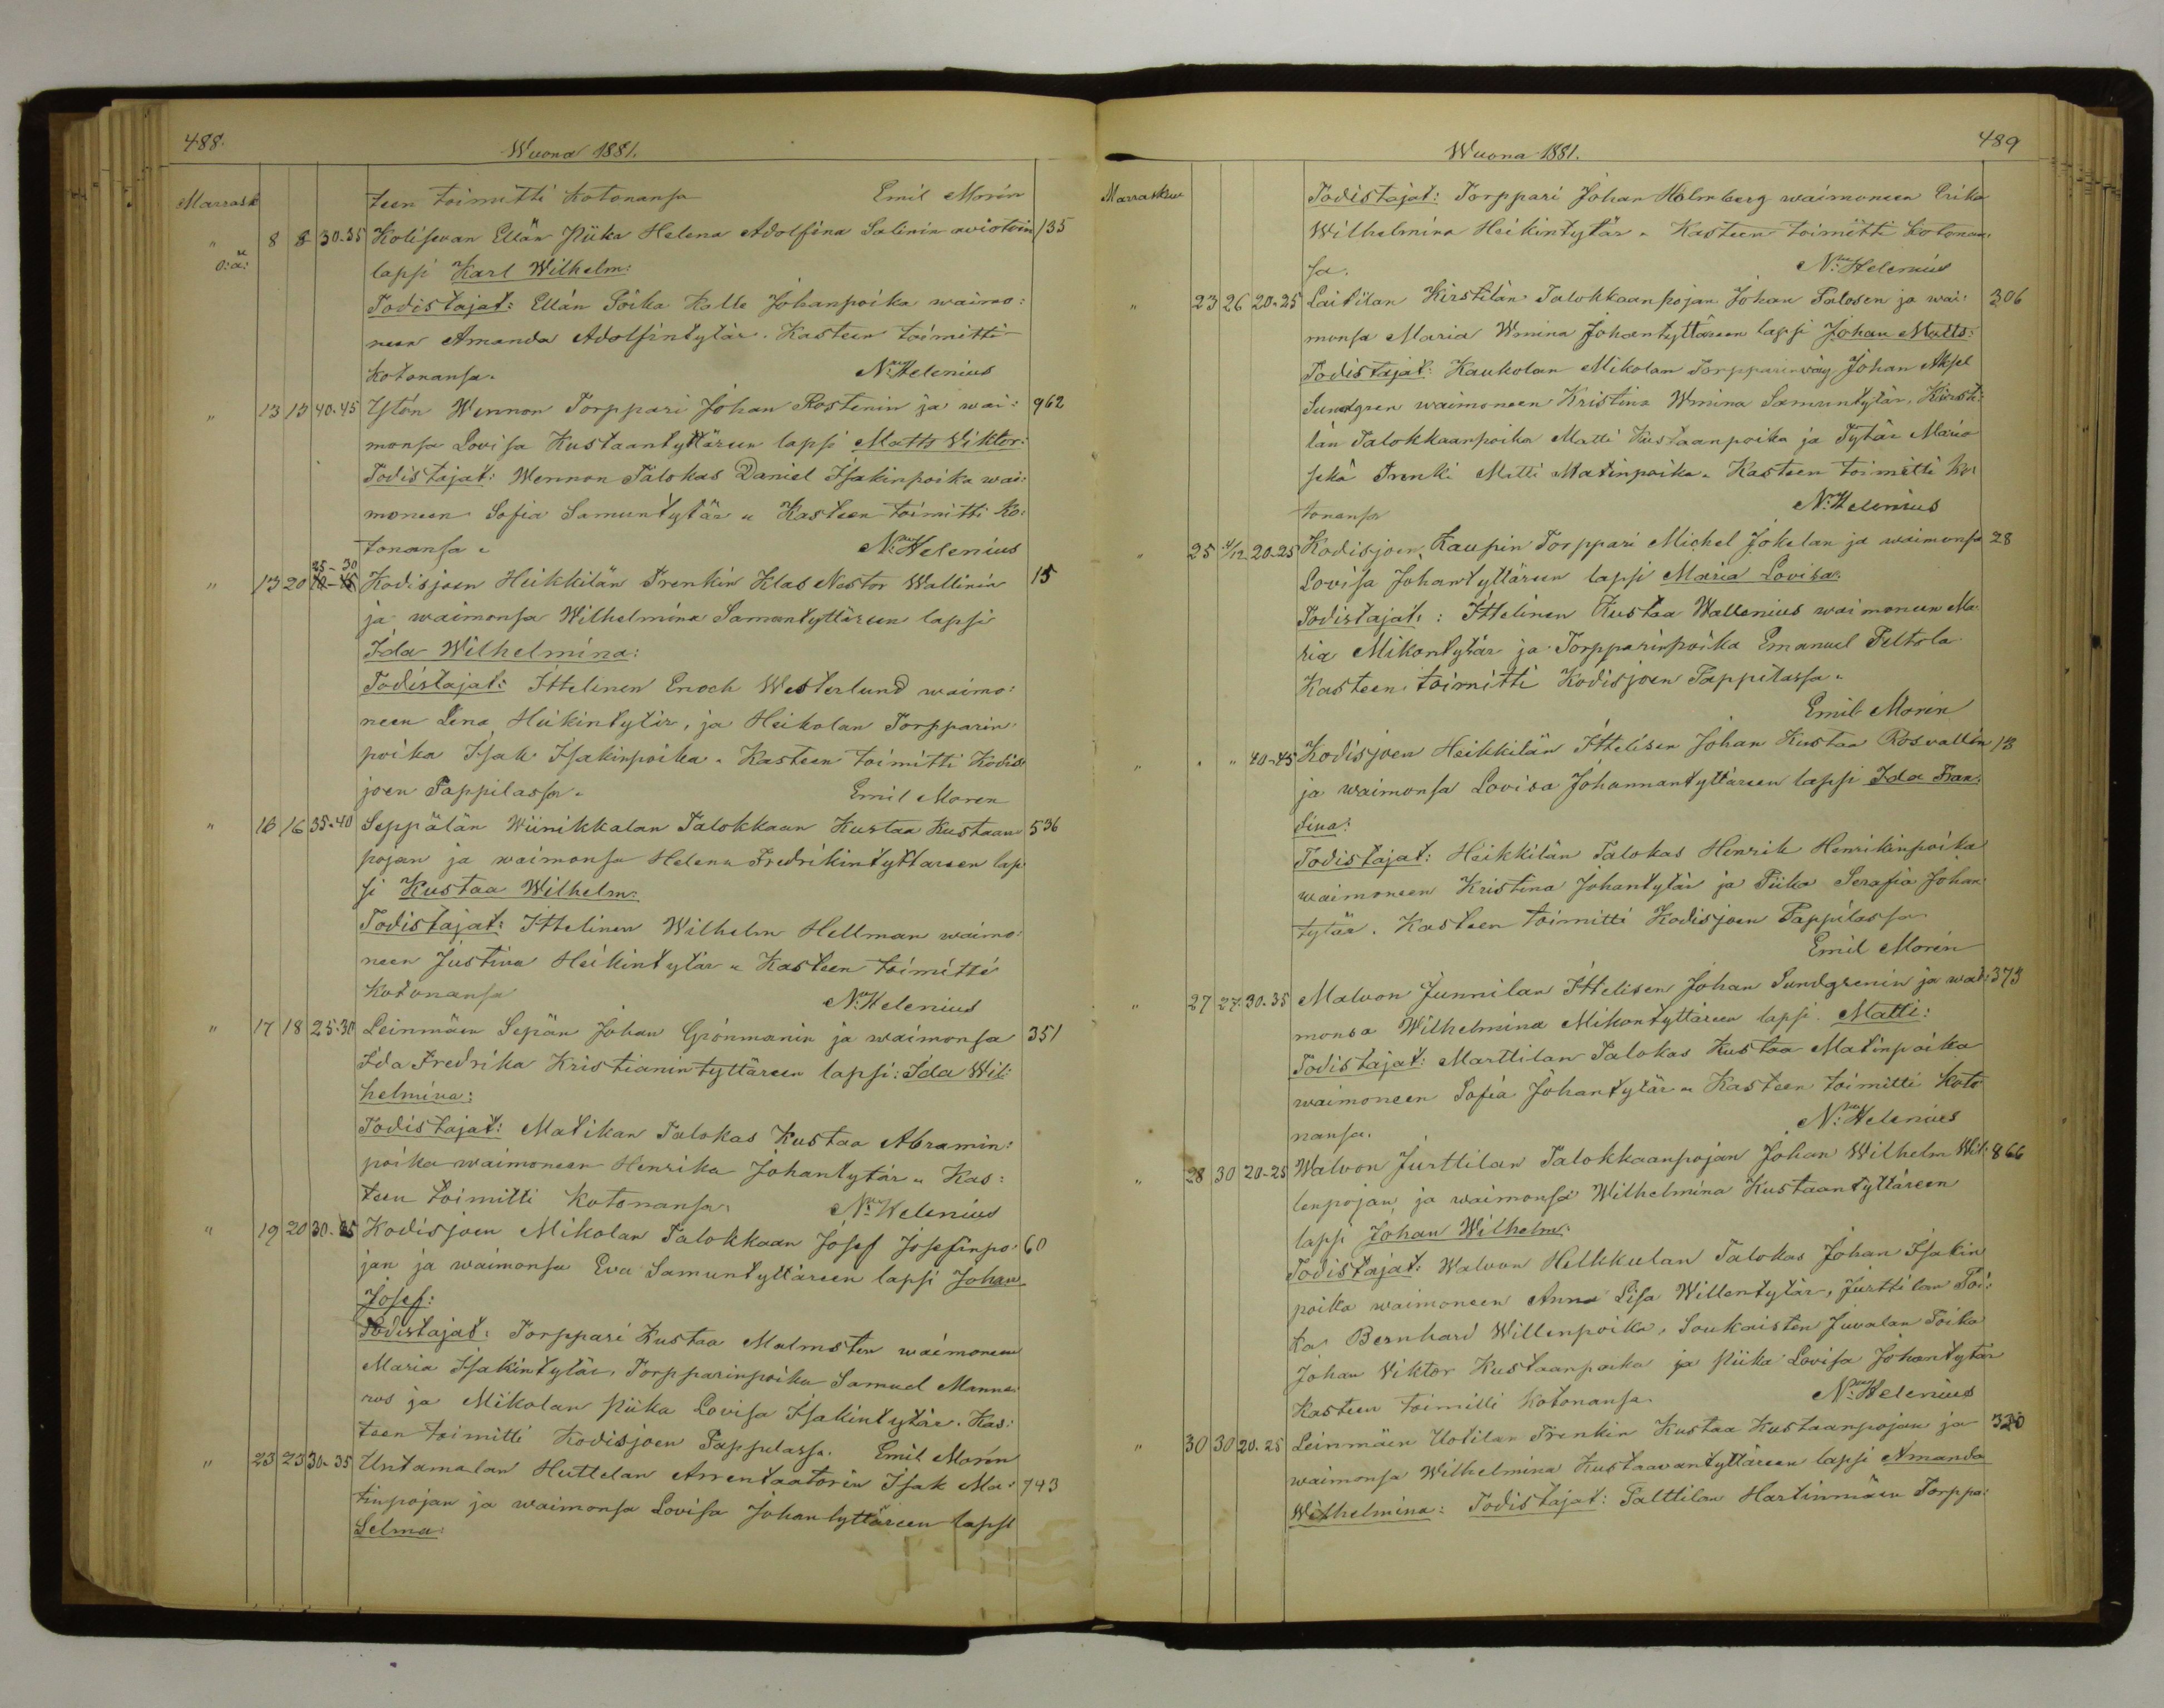 488.
Wuona 1881.
Marrask teen toimitti kotonansa Emil Morén
" 8 8 30-35 Kolisevan Ellän Piika Helena Adolfina Salinin aviotoin 135
o:ä: lapsi Karl Wilhelm:
Todistajat: Ellän Poika Kalle Johanpoika waimo:
neen Amanda Adolfintytär. Kasteen toimitti
kotonansa. N. Helenius
" 13 13 40-45 Ylön Wennon Torppari Johan Rostenin ja wai: 962
monsa Lovisa Kustaantyttären lapsi Matts Viktor:
Todistajat: Wennon Talokas Daniel Isakinpoika wai:
moneen Sofia Samuntytär " Kasteen toimitti Ko:
tonansa " N. Helenius
25-30
" 13 20 40-45 Kodisjoen Heikkilän Trenkin Klas Nestor Wallinin 15
ja waimonsa Wilhelmina Samuntyttäreen lapsi
Ida Wilhelmina:
Todistajat: Ittelinen Enoch Westerlund waimo:
neen Lena Heikintytär, ja Heikolan Torpparin
poika Isak Isakinpoika. Kasteen toimitti Kodis
joen Pappilassa. Emil Moren
" 16 16 35-40 Seppälän Wiinikkalan Talokkaan Kustaa Kustaan 536
pojan ja waimonsa Helena Fredrikintyttareen lap
si Kustaa Wilhelm:
Todistajat: Ittelinen Wilhelm Hellman waimo:
neen Justina Heikintytär " Kasteen toimitti
Kotonansa N. Helenius
" 17 18 25-30 Leinmäen Sepän Johan Grönmanin ja waimonsa 351
Ida Fredrika Kristianintyttäreen lapsi: Ida Wil:
helmina:
Todistajat: Matikan Talokas Kustaa Abramin:
poika waimoneen Henrika Johantytär " Kas:
teen toimitti kotonansa. N. Helenius
" 19 20 30-35 Kodisjoen Mikolan Talokkaan Josef Josefinpo: 60
jan ja waimonsa Eva Samuntyttäreen lapsi Johan
Josef:
Todistajat: Torppari Kustaa Malmsten waimoneen
Maria Isakintytär, Torpparinpoika Samuel Manne
ros ja Mikolan Piika Lovisa Isakintytär. Kas:
teen toimitti Kodisjoen Pappilassa. Emil Morén
" 23 23 30-35 Untamalan Huttelan Arrentaatorin Isak Ma: 743
tinpojan ja waimonsa Lovisa Johantyttäreen lapsi
Selma:
489
Wuona 1881.
Marraskuu Todistajat: Torppari Johan Holmberg waimoneen Erika
Wilhelmina Heikintytär " Kasteen toimitti kotonan
sa. N. Helenius
" 23 26 20-25 Laitilan Kirstilän Talokkaanpojan Johan Palosen ja wai: 306
monsa Maria Wmina Johantyttäreen lapsi Johan Matts:
Todistajat: Kaukolan Mikolan Torpparinväy Johan Aksel
Sundgren waimoneen Kristina Wmina Samuntytär, Kirsti:
län Talokkaanpoika Matti Kustaanpoika ja Tytär Maria
sekä Trenki Matti Matinpoika. Kasteen toimitti Ko:
tonansa N. Helenius
" 25 4/12 20-25 Kodisjoen, Kaupin Torppari Michel Jokelan ja waimonsa 28
Lovisa Johantyttäreen lapsi Maria Lovisa:
Todistajat: Ittelinen Kustaa Wallenius waimoneen Ma
ria Mikontytär ja Torpparinpoika Emanuel Peltola
Kasteen toimitti Kodisjoen Pappilassa.
Emil Morén
" " " 40-45 Kodisjoen Heikkilän Ittelisen Johan Kustaa Rosvallin 13
ja waimonsa Lovisa Johannantyttäreen lapsi Ida Fran
dina:
Todistajat: Heikkilän Talokas Henrik Henrikinpoika
waimoneen Kristina Johantytär ja Piika Serafia Johan
tytär. Kasteen toimitti Kodisjoen Pappilassa
Emil Morén
" 27 27 30-35 Malvon Junnilan Ittelisen Johan Sundgrenin ja wai: 373
monsa Wilhelmina Mikontyttäreen lapsi Matti:
Todistajat: Marttilan Talokas Kustaa Matinpoika
waimoneen Sofia Johantytär " Kasteen toimitti koto
nansa. N. Helenius
" 28 30 20-25 Walvon Jurttilan Talokkaanpojan Johan Wilhelm Wil: 866
lenpojan, ja waimonsa Wilhelmina Kustaantyttäreen
lapsi Johan Wilhelm:
Todistajat: Walvon Helkkulan Talokas Johan Isakin
poika waimoneen Anna Lisa Willentytär, Jurttilan Poi:
ka Bernhard Willenpoika, Soukaisten Juvalan Poika
Johan Viktor Kustaanpoika ja Piika Lovisa Johantytär
Kasteen toimitti kotonansa. N. Helenius
" 30 30 20.25 Leinmäen Uotilan Trenkin Kustaa Kustaanpojan ja 320
waimonsa Wilhelmina Kustaavantyttäreen lapsi Amanda
Wilhelmina: Todistajat: Palttilan Hartinmäen Torppa: